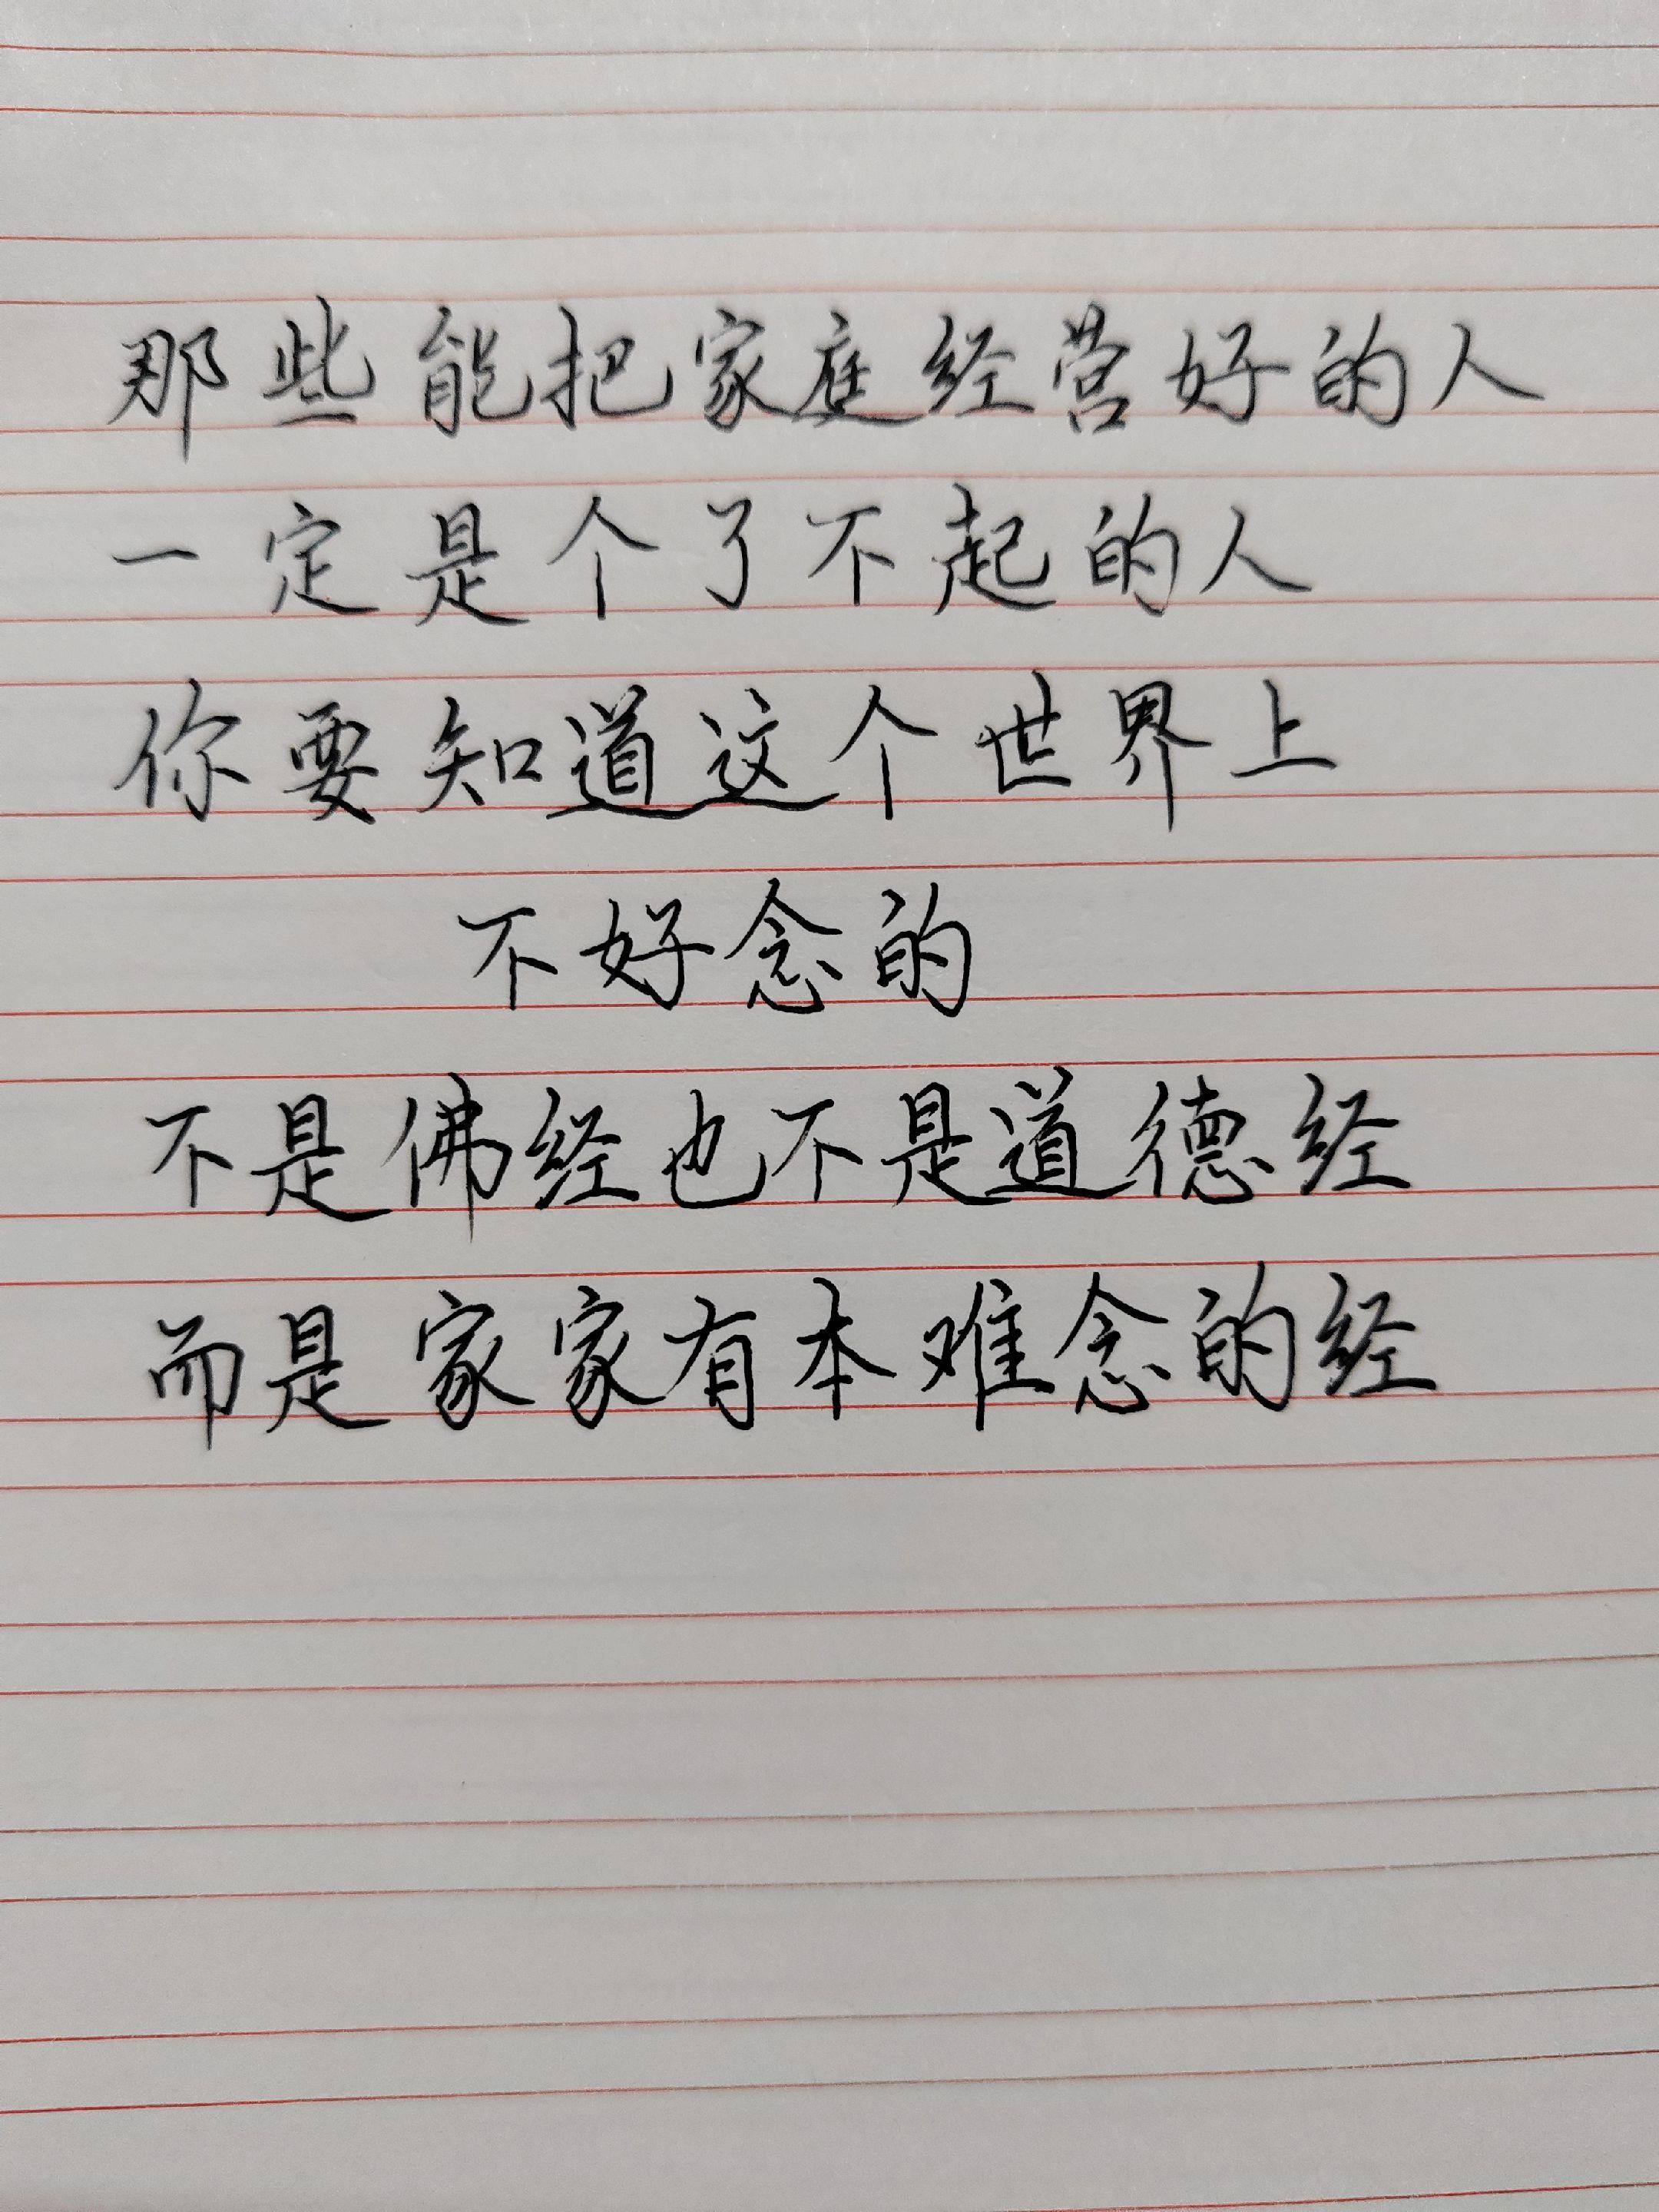 那些能把家庭经营好的人
一定是个了不起的人
你要知道这个世界上
不好念的
不是佛经也不是道德经
而是家家有本难念的经